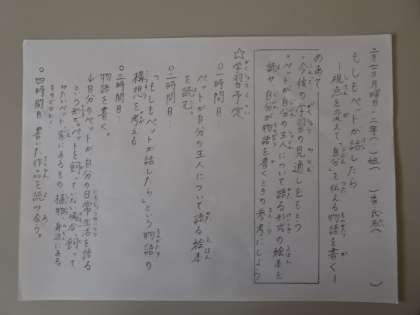 もしもペットが話したら
―視点を変えて、良さを伝える物語を書く―
めあて
・今後の学習の見通しをもとう
・ペットが自分の主人について語る形式の絵本を
読み、自分が物語を書くときの参考にしよう
☆学習予定
○一時間目
ペットが自分の主人について語る絵本
を読む。
○二時間目
「もしもペットが話したら」という物語の
構想を考える
○三時間目
物語を書く。
↓自分のペットが自分の日常生活を語る
という形。ペットを飼っていない場合、飼って
みたいペット、家にあるもの、植物、身近にある
ものでもよし。
○四時間目 書いた作品を読み合う。